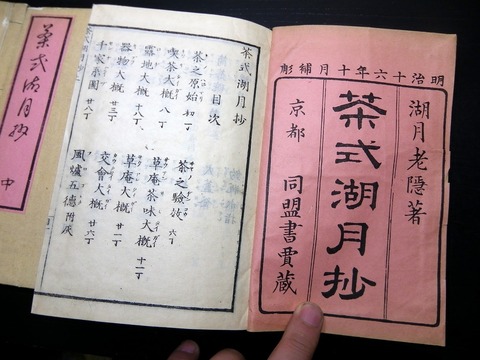 明治十六年十月補彫
湖月老隱著
茶式湖月抄
京都 同盟書賈蔵
茶式湖月抄
目次
茶之原始 初丁 茶之驗效 六丁
喫茶大概 八丁 草庵茶味大概 十一丁
露地大概 十八丁 草庵大概 廿一丁
器物大概 廿三丁 交會大概 廿六丁
千家系圖 廿八丁 風爐五德附灰
茶式湖月抄
茶式湖月抄 中